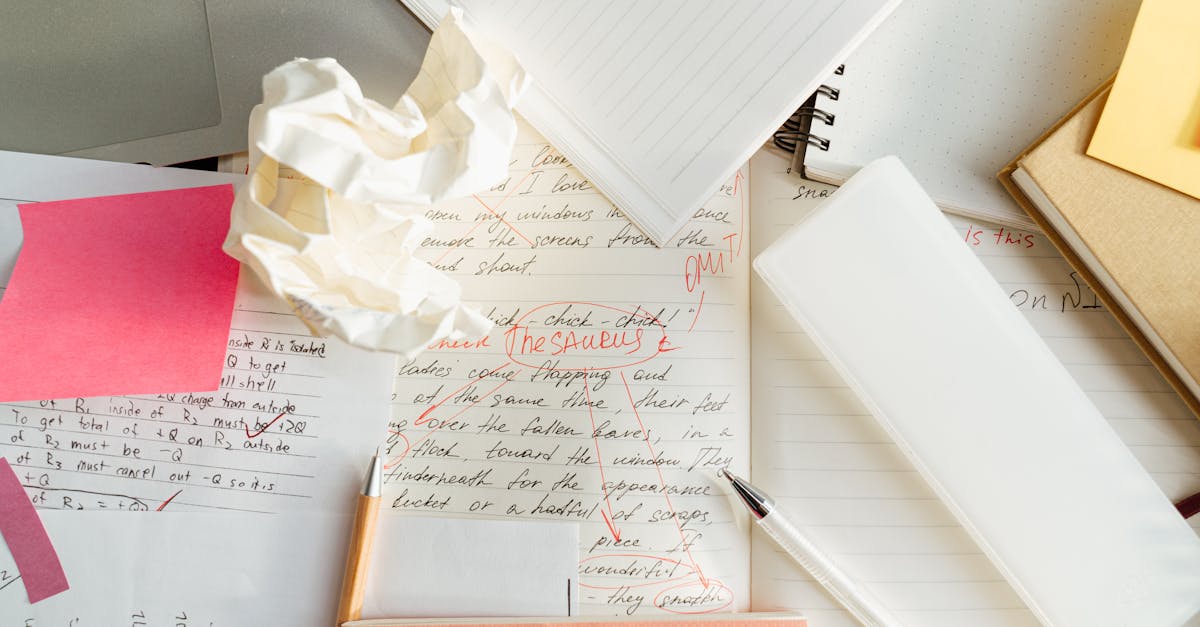 inside Ri is isolated
Q to get
ll shell
+Q charge from outside
of R1 inside of R2 must be +2Q
To get total of +Q on R2 outside
of R2 must be -Q
of R3 must cancel out -Q so it is
+Q
of R2 = +Q
I love
open my windows in once
emove the screens from the
and shout.
OMIT
ick - chick - chick!"
check Thesaurus
ladies come flapping and
at the same time, their feet
over the fallen leaves, in a
flock, toward the window. They
underneath for the appearance
bucket or a hatful of scraps,
piece. If
wonderful
- they snatch
sna
is this
on